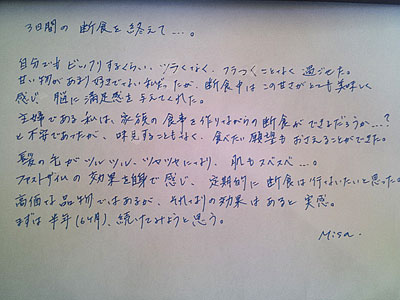 3日間の 断食を終えて…。
自分でもビックリするくらい、ツラくなく、フラつくことなく過ごせた。
甘い物があまり好きでない私だったが、断食中はこの甘さがとても美味しく
感じ、脳に満足感を与えてくれた。
主婦である私は、家族の食事を作りながらの断食ができるだろうか…?
と不安であったが、味見することもなく、食べたい願望もおさえることができた。
髪の毛がツルツル、ツヤツヤになり、肌もスベスベ…。
ファストザイムの効果を自身で感じ、定期的に断食は行ないたいと思った。
高価な品物ではあるが、それなりの効果はあると実感。
まずは半年(6ヶ月)、続けてみようと思う。
Misa.